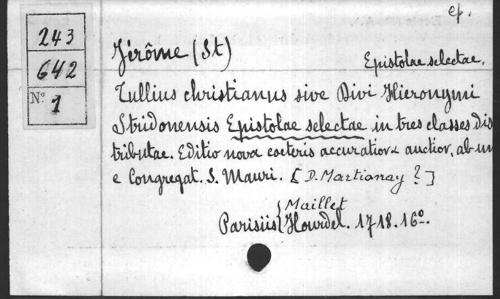 ep.
243
642
N° 1
Jérôme (St)
Epistolae selectae.
Tullius christianus sive Divi Hieronymi
Stridonensis Epistolae selectae in tres classes dis
tributae. Editio nova coeteris accuratior & auctior, ab un
e Congregat. S. Mauri. [D. Martianay ?]
Parisiis { Maillet
Hourdel. 1718. 16°.